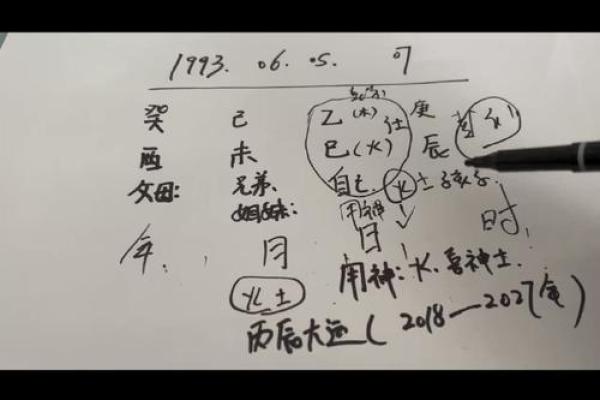 1993. 06. 05. 07
癸 己 乙(木) 庚
酉 未 巳(火) 辰
父母: 兄弟、 自己 火 土 孩子.
姐妹: 用神
年. 月 日 时,
火土 用神: 火. 喜神土.
丙辰大运 ( 2018—2027年)